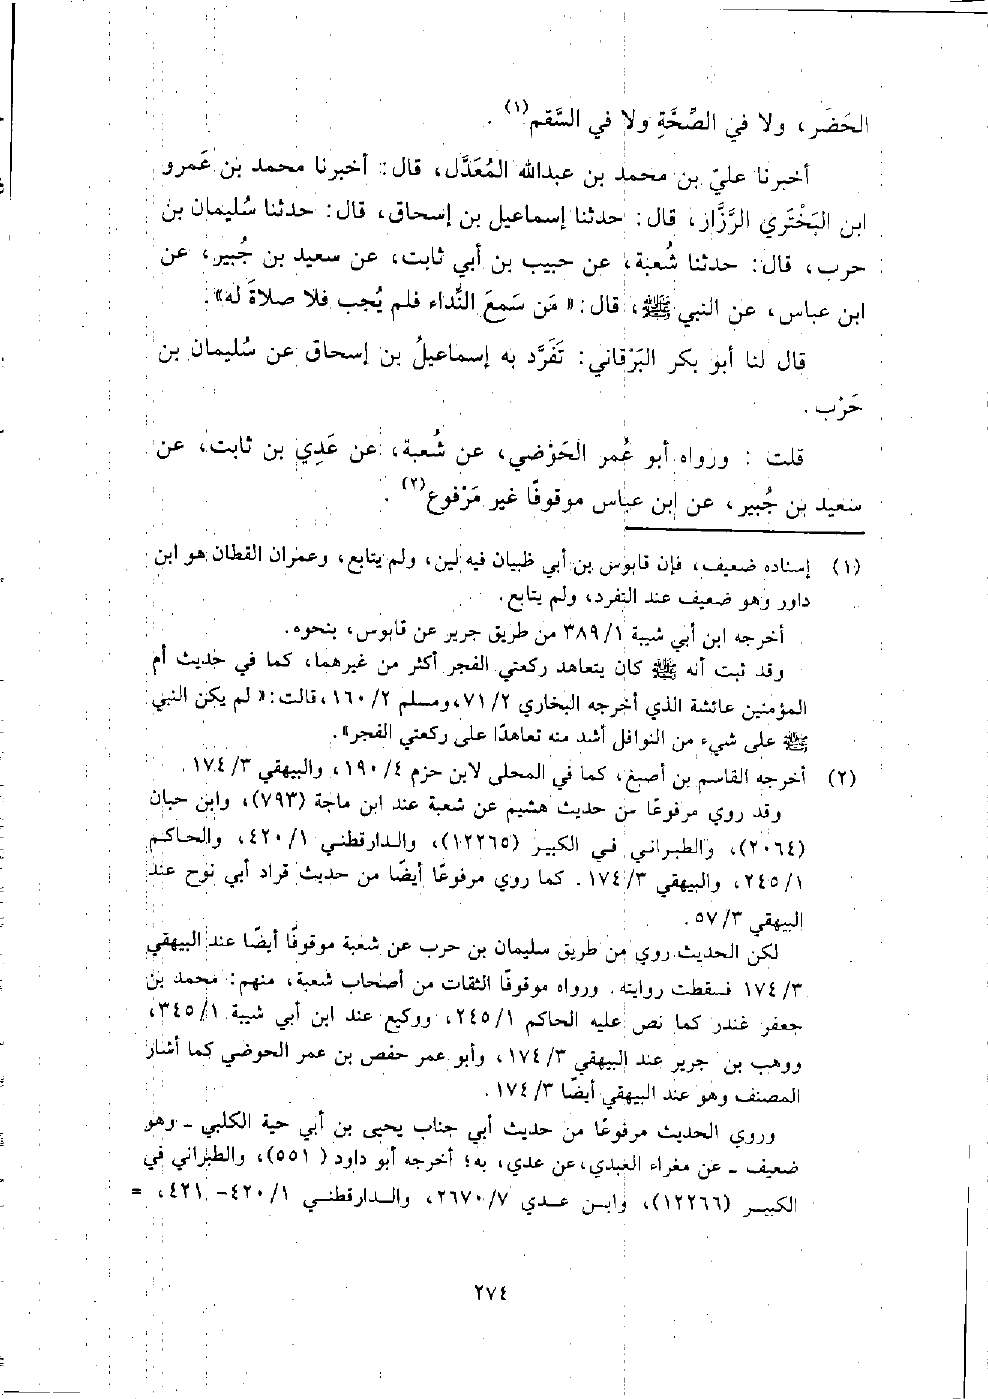 الحَضَر، ولا في الصِّحَّةِ ولا في السَّقم(١) .
أخبرنا عليّ بن محمد بن عبدالله المُعَدَّل، قال: أخبرنا محمد بن عَمرو
ابن البَخْتَري الرَّزَّاز، قال: حدثنا إسماعيل بن إسحاق، قال: حدثنا سُليمان بن
حرب، قال: حدثنا شُعبة، عن حبيب بن أبي ثابت، عن سعيد بن جُبير، عن
ابن عباس، عن النبي ﷺ، قال: «مَن سَمعَ النِّداء فلم يُجب فلا صلاةَ له».
قال لنا أبو بكر البَرْقاني: تَفَرَّد به إسماعيلُ بن إسحاق عن سُليمان بن
حَرْب .
قلت : ورواه أبو عُمر الحَوْضي، عن شُعبة، عن عَدِي بن ثابت، عن
سعيد بن جُبير، عن ابن عباس موقوفًا غير مَرْفوع(٢) .
(١) إسناده ضعيف، فإن قابوس بن أبي ظبيان فيه لين، ولم يتابع، وعمران القطان هو ابن
داور وهو ضعيف عند التفرد، ولم يتابع.
أخرجه ابن أبي شيبة ١/ ٣٨٩ من طريق جرير عن قابوس، بنحوه.
وقد ثبت أنه ﷺ كان يتعاهد ركعتي الفجر أكثر من غيرهما، كما في حديث أم
المؤمنين عائشة الذي أخرجه البخاري ٢/ ٧١، ومسلم ٢/ ١٦٠، قالت: «لم يكن النبي
ﷺ على شيء من النوافل أشد منه تعاهدًا على ركعتي الفجر».
(٢) أخرجه القاسم بن أصبغ، كما في المحلى لابن حزم ٤/ ١٩٠، والبيهقي ٣/ ١٧٤ .
وقد روي مرفوعًا من حديث هشيم عن شعبة عند ابن ماجة (٧٩٣)، وابن حبان
(٢٠٦٤)، والطبراني في الكبير (١٢٢٦٥)، والدارقطني ١/ ٤٢٠، والحاكم
١/ ٢٤٥، والبيهقي ٣/ ١٧٤ . كما روي مرفوعًا أيضًا من حديث قراد أبي نوح عند
البيهقي ٣/ ٥٧ .
لكن الحديث روي من طريق سليمان بن حرب عن شعبة موقوفًا أيضًا عند البيهقي
٣/ ١٧٤ فسقطت روايته . ورواه موقوفًا الثقات من أصحاب شعبة، منهم: محمد بن
جعفر غندر كما نص عليه الحاكم ١/ ٢٤٥، ووكيع عند ابن أبي شيبة ١/ ٣٤٥،
ووهب بن جرير عند البيهقي ٣/ ١٧٤، وأبو عمر حفص بن عمر الحوضي كما أشار
المصنف وهو عند البيهقي أيضًا ٣/ ١٧٤ .
وروي الحديث مرفوعًا من حديث أبي جناب يحيى بن أبي حية الكلبي ـ وهو
ضعيف ـ عن مغراء العبدي، عن عدي، به؛ أخرجه أبو داود (٥٥١)، والطبراني في
الكبير (١٢٢٦٦)، وابن عدي ٧/ ٢٦٧٠، والدارقطني ١/ ٤٢٠- ٤٢١، =
٢٧٤